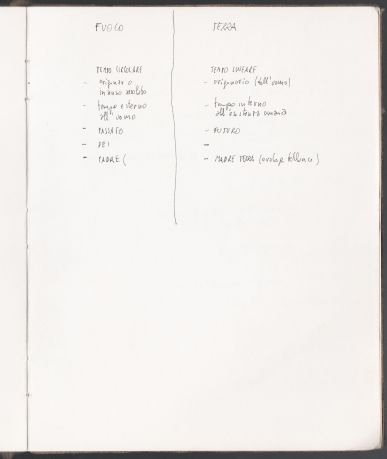 FUOCO
TEMPO CIRCOLARE
- originario o
- tempo esterno
all'uomo
- PASSATO
- DEI
- PADRE (
TERRA
TEMPO LINEARE
- originario (dell'uomo)
- tempo interno
all'esistenza umana
- FUTURO
-
- MADRE TERRA (